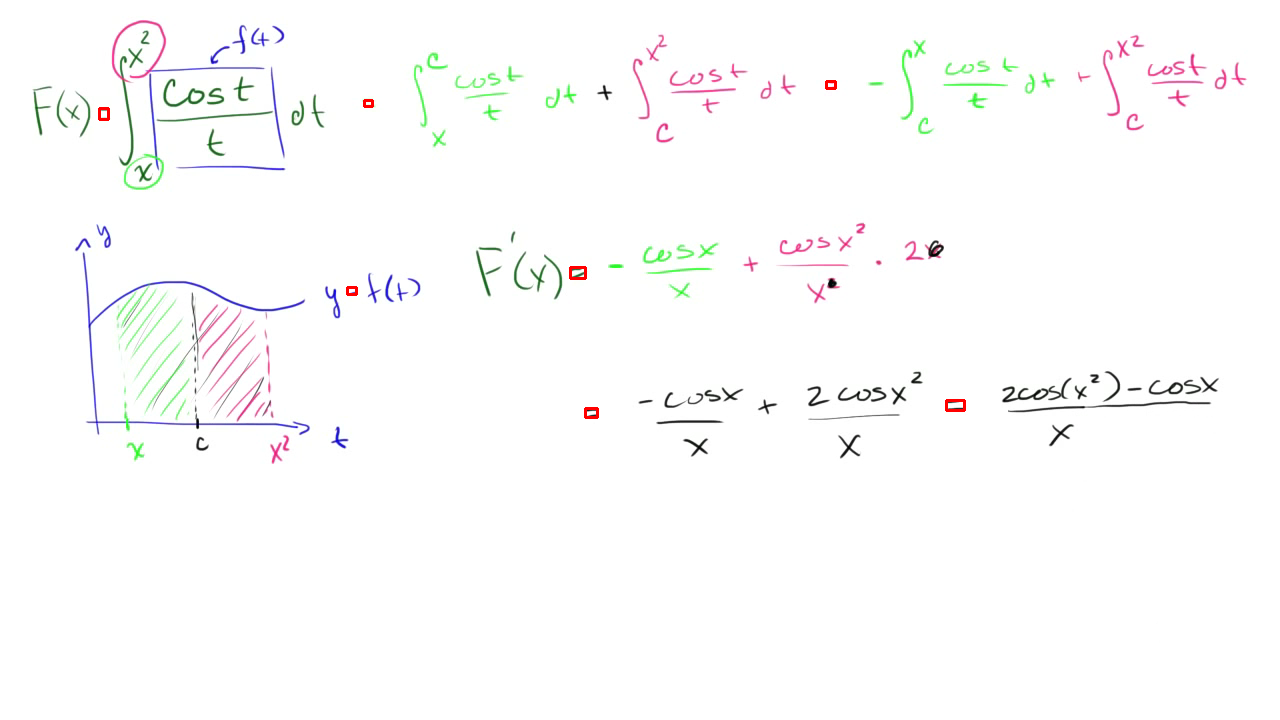 f(t)
F(x) = ∫ₓ^(x²) cos t / t dt = ∫ₓ^c cos t / t dt + ∫_c^(x²) cos t / t dt = - ∫_c^x cos t / t dt + ∫_c^(x²) cos t / t dt
y
F'(x) = - cos x / x + cos x² / x · 2
y = f(t)
= -cos x / x + 2 cos x² / x = 2cos(x²) - cos x / x
x c x² t